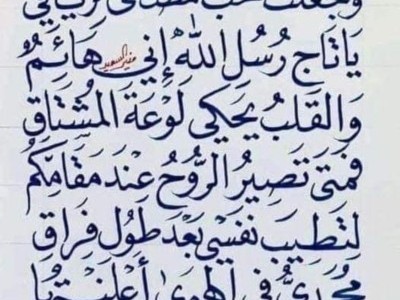 يَا تَاجَ رُسُلِ اللهِ إِنِّي هَائِمٌ
وَالقَلْبُ يَحْكِي لَوْعَةَ المُشْتَاقِ
فَمَتَى تَصِيرُ الرُّوحُ عِنْدَ مَقَامِكُم
لِتَطِيبَ نَفْسِي بَعْدَ طُولِ فِرَاقِ
فِي الهَوَى أَعْلَنْتُهَا